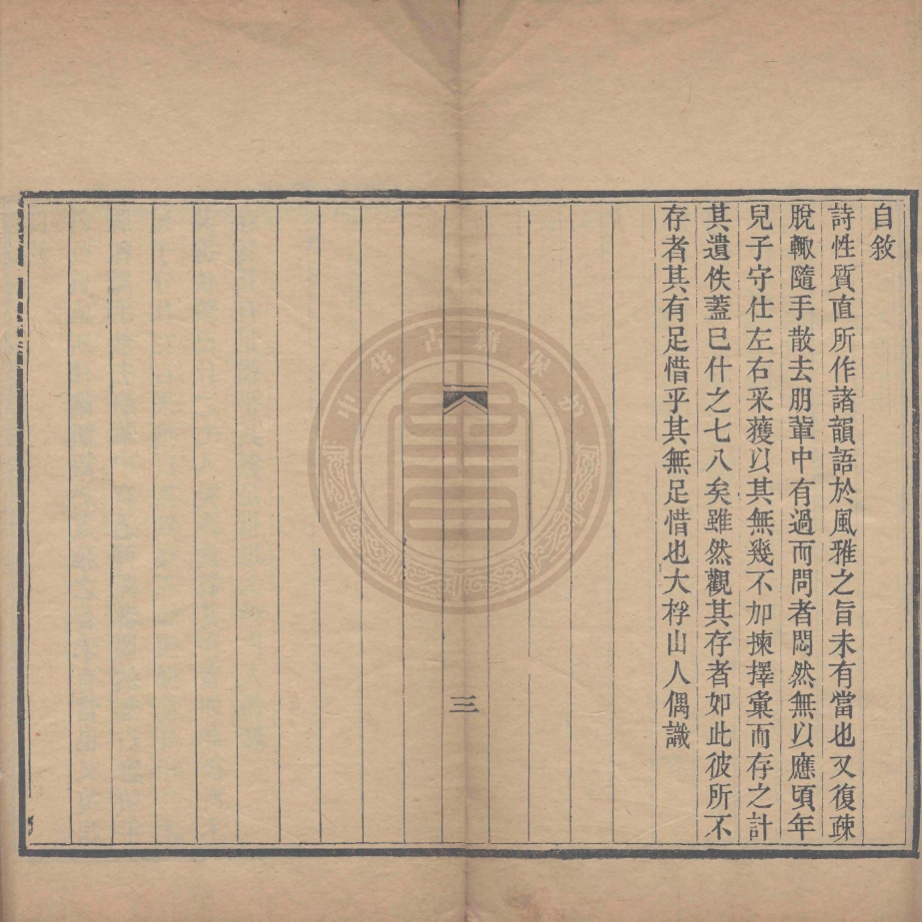 自敘
詩性質直所作諸韻語於風雅之旨未有當也又復疎
脫輙隨手散去朋輩中有過而問者悶然無以應頃年
兒子守仕左右采獲以其無幾不加揀擇彙而存之計
其遺佚蓋已什之七八矣雖然觀其存者如此彼所不
存者其有足惜乎其無足惜也大桴山人偶識
三
中华古籍保护